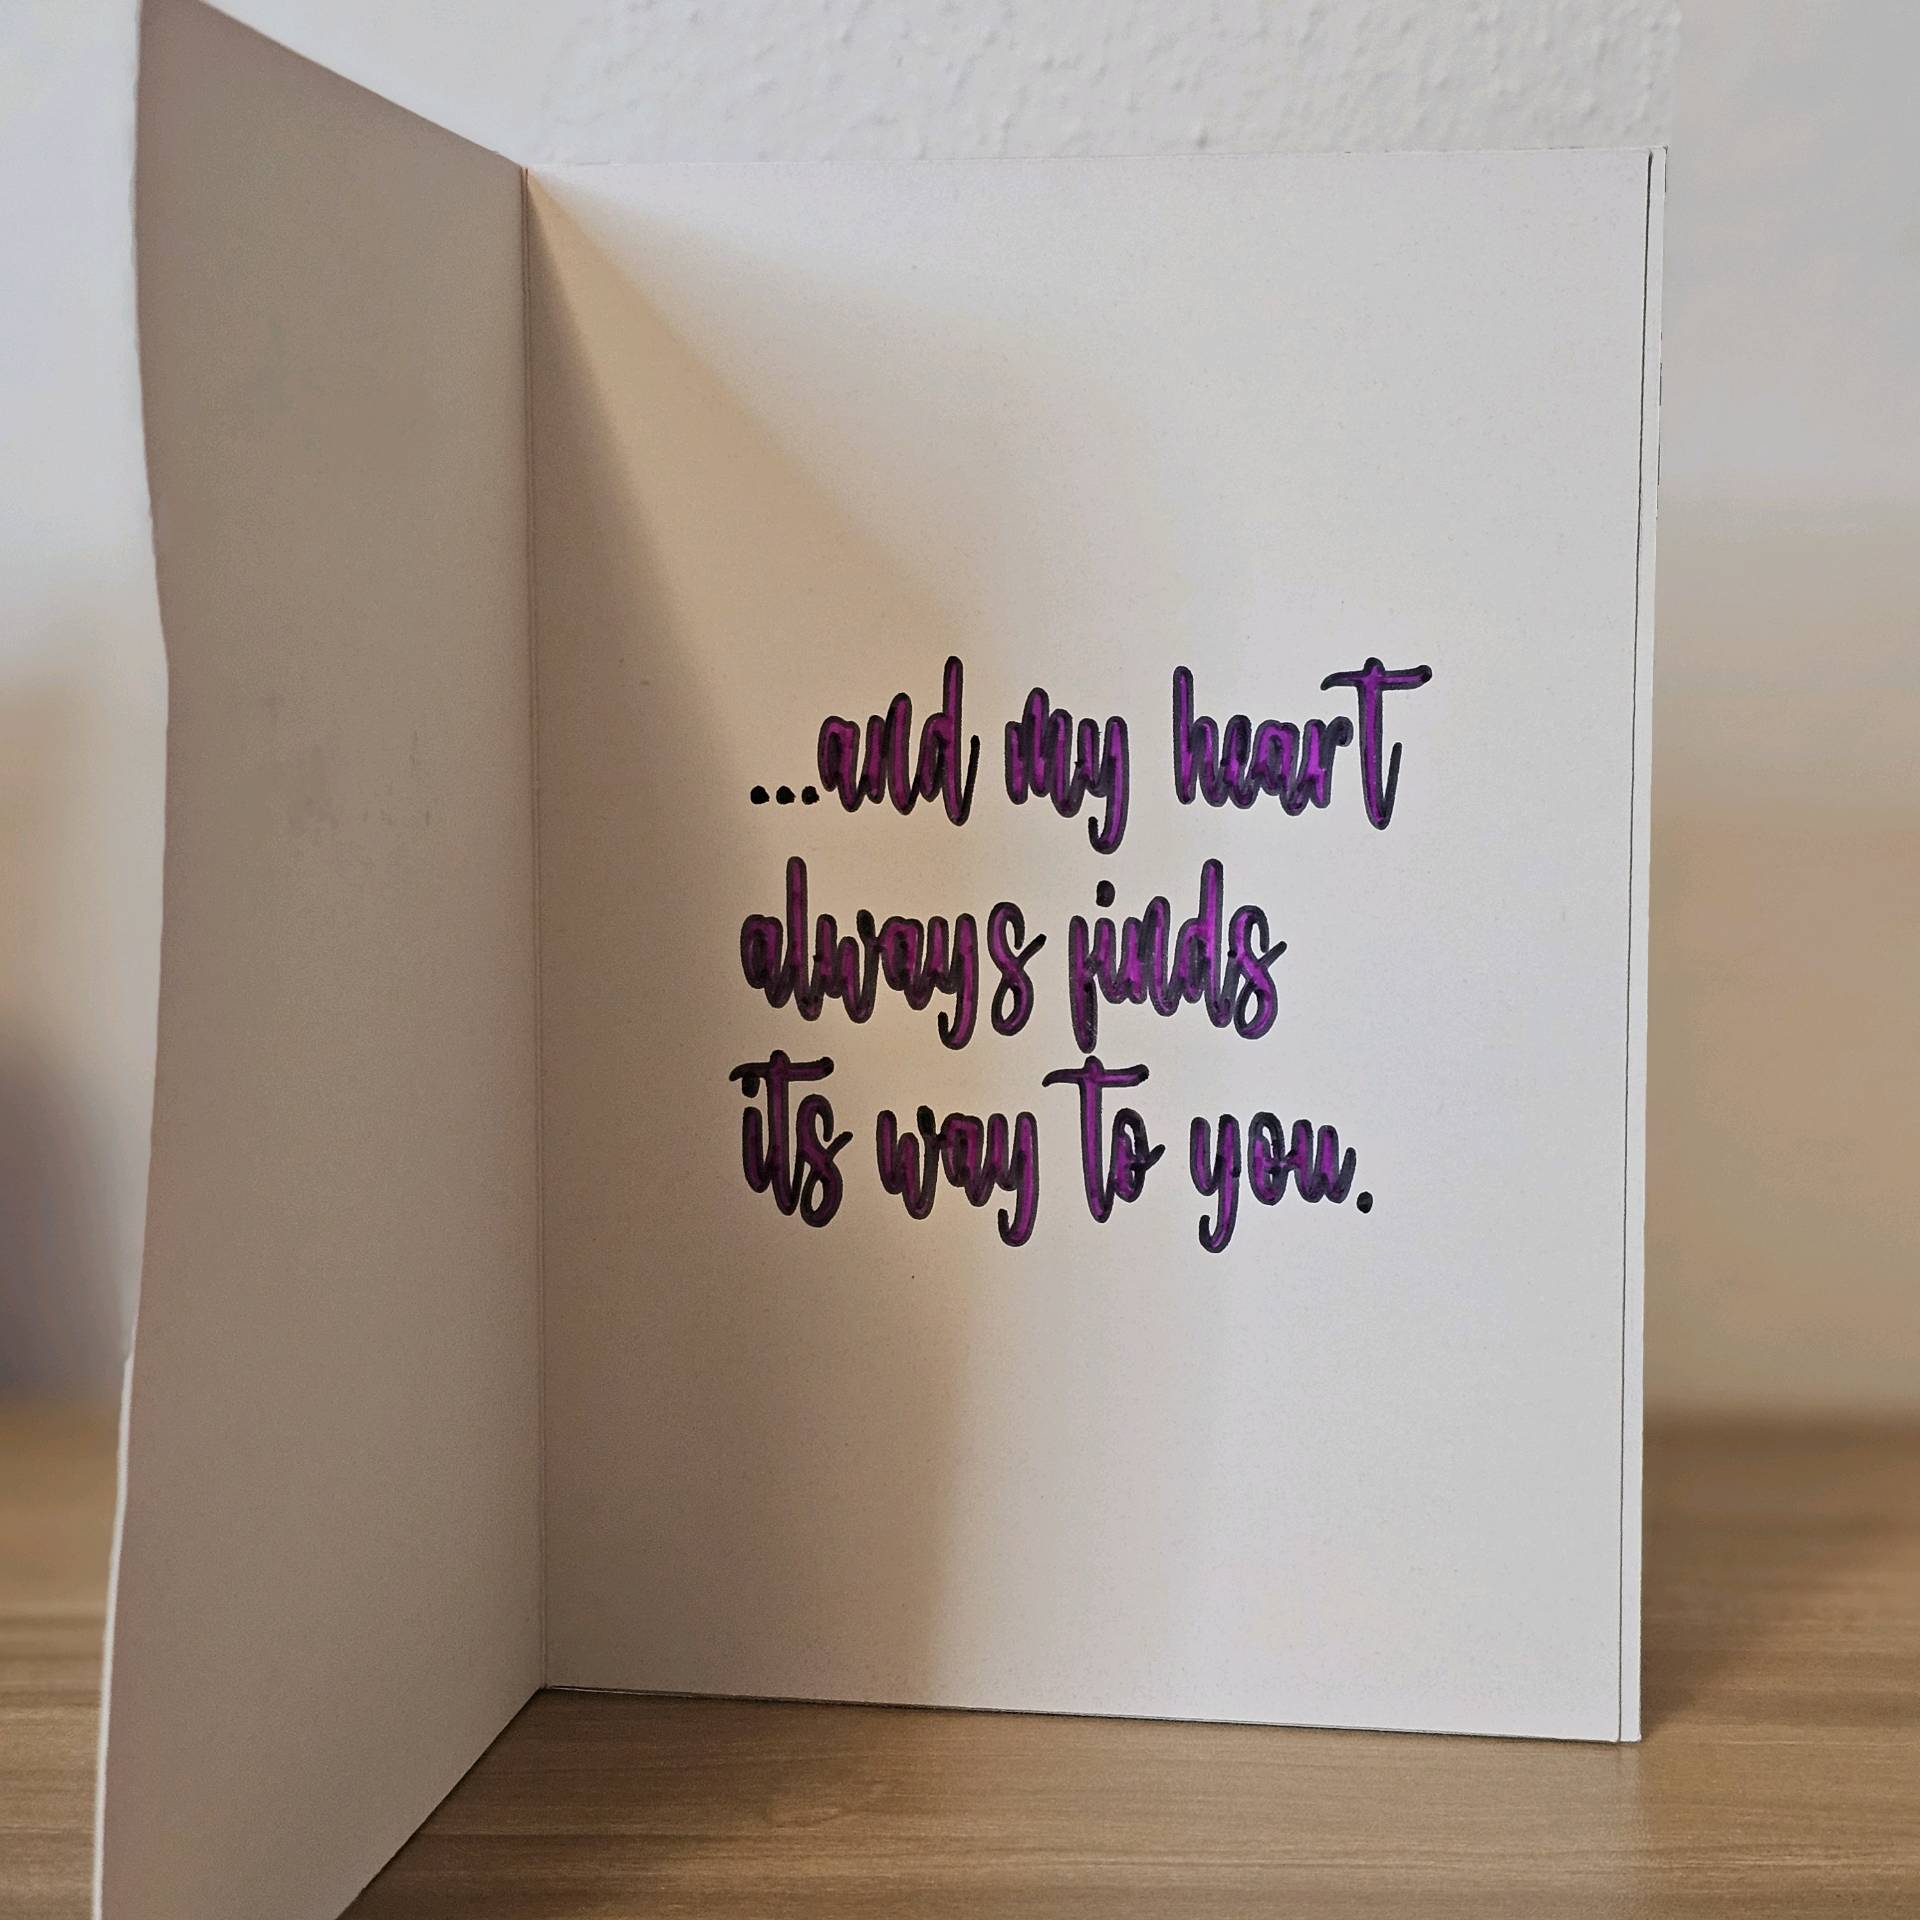 ...and my heart
always finds
its way to you.